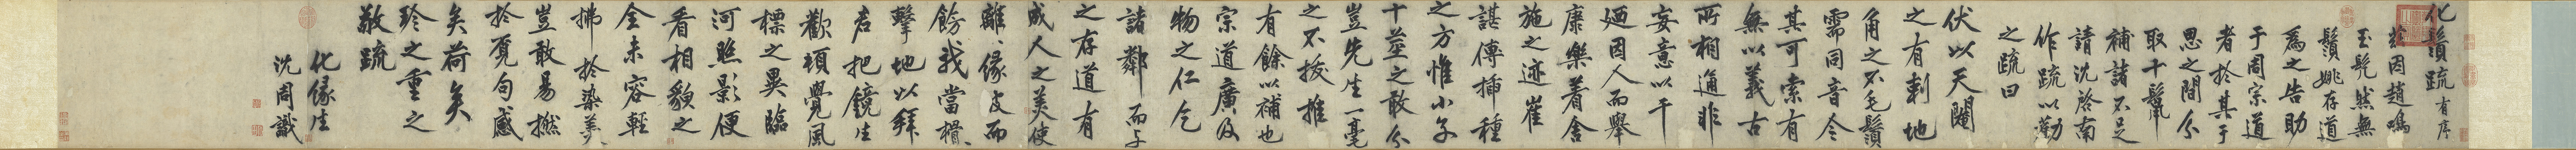 化鬚疏有序
茲因趙鳴
玉髡然無
鬚姚存道
爲之告助
于周宗道
者於其于
思之間分
取十鬣
補諸不足
請沈啓南
作疏以勸
之疏曰
伏以天閹
之有刺地
角之不毛鬚
需同音今
其可索有
無以義古
所相通非
妄意以干
廼因人而舉
康樂着舍
施之迹崔
諶傳插種
之方惟小子
十莖之敢分
豈先生一毫
之不拔推
有餘以補也
宗道廣及
物之仁乞
諸鄰而与
之存道有
成人之美使
離〻緣皮而
飾我當榾〻
擊地以拜
君把鏡生
歡頓覺風
標之異臨
河照影便
看相貌之
全未容輕
拂於染羹
豈敢易撚
於覓句感
矣荷矣
珍之重之
敬疏
化緣生
沈周識